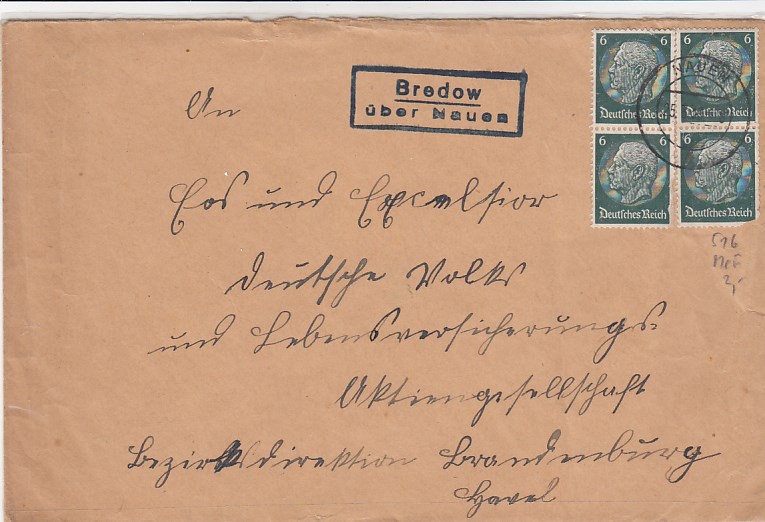 6 6 6 6
NAUEN
Deutsches Reich Deutsches Reich
6 6 6 6
Deutsches Reich Deutsches Reich
Bredow
über Nauen
An
Eos und Excelsior
deutsche Volks
und Lebensversicherungs-
Aktiengesellschaft
Bezirksdirektion Brandenburg
Havel
516
MeF
2,-